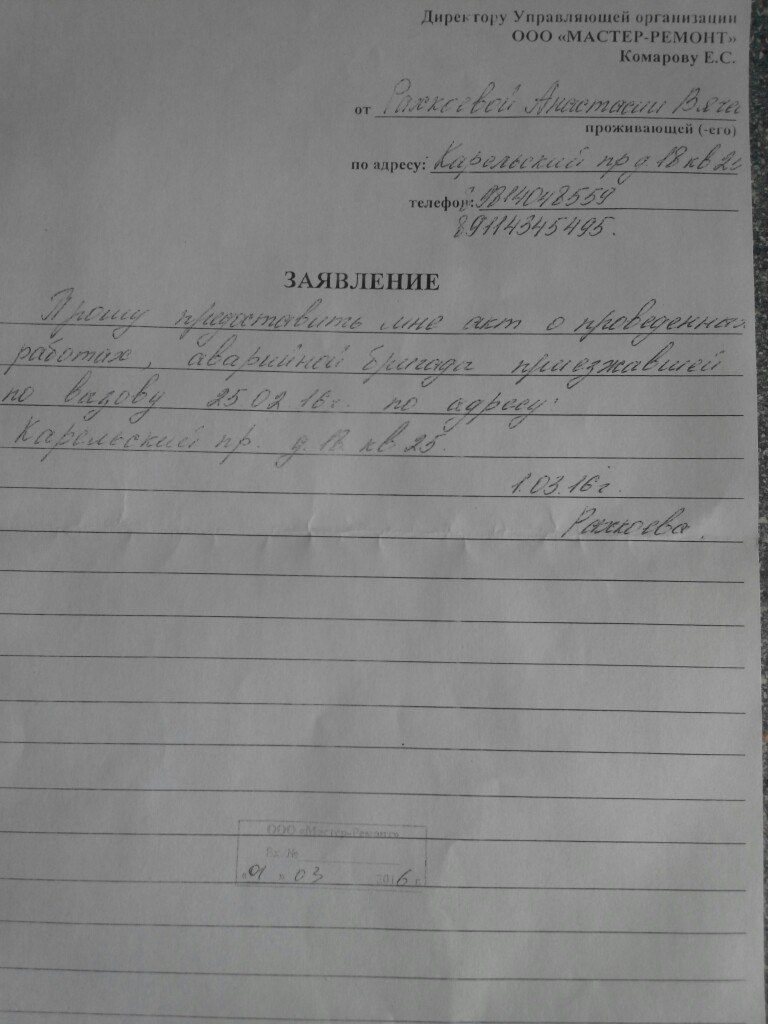 Директору Управляющей организации
ООО «МАСТЕР-РЕМОНТ»
Комарову Е.С.
от Ражкоевой Анастасии Вяче
проживающей (-его)
по адресу: Карельский пр д. 18 кв 2
телефон: 9814048559
89114345495.
ЗАЯВЛЕНИЕ
Прошу предоставить мне акт о проведенных
работах, аварийной бригада приезжавшей
по вызову 25 02 16г. по адресу:
Карельский пр. д. 18. кв. 25.
1.03.16г.
Ражкоева.
ООО «Мастер-Ремонт»
Вх. №
«01» 03 2016 г.